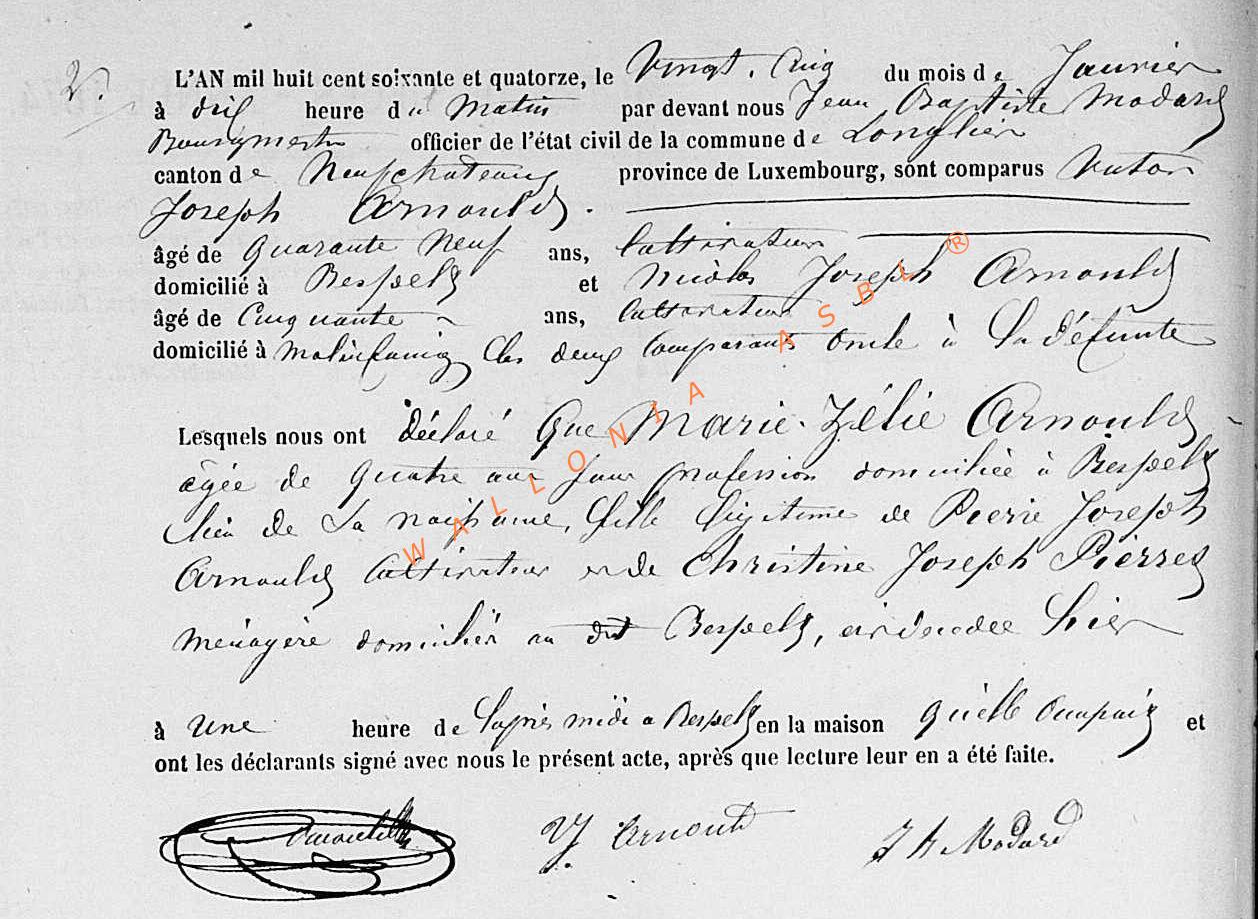 2.
L'AN mil huit cent soixante et quatorze, le Vingt. Cinq du mois de Janvier
à dix heure du Matin par devant nous Jean Baptiste Modard
Bourgmestre officier de l'état civil de la commune de Longlier
canton de Neufchateau province de Luxembourg, sont comparus Victor
Joseph Arnould.
âgé de Quarante Neuf ans, Cultivateur
domicilié à Respelt et Nicolas Joseph Arnould
âgé de Cinquante ans, Cultivateur
domicilié à Molinfaing Les deux Comparants Oncle à La défunte
Lesquels nous ont déclaré Que Marie-Zélie Arnould
âgée de Quatre ans Sans profession domiciliée à Respelt
Lieu de Sa naissance, fille Légitime de Pierre Joseph
Arnould Cultivateur et de Christine Joseph Pierret
Ménagère domiciliés au dit Respelt, est décédée hier
à Une heure de L'après midi a Respelt en la maison Qu'elle Occupait et
ont les déclarants signé avec nous le présent acte, après que lecture leur en a été faite.
V J. Arnould J B Modard
WALLONIA ASBL ®